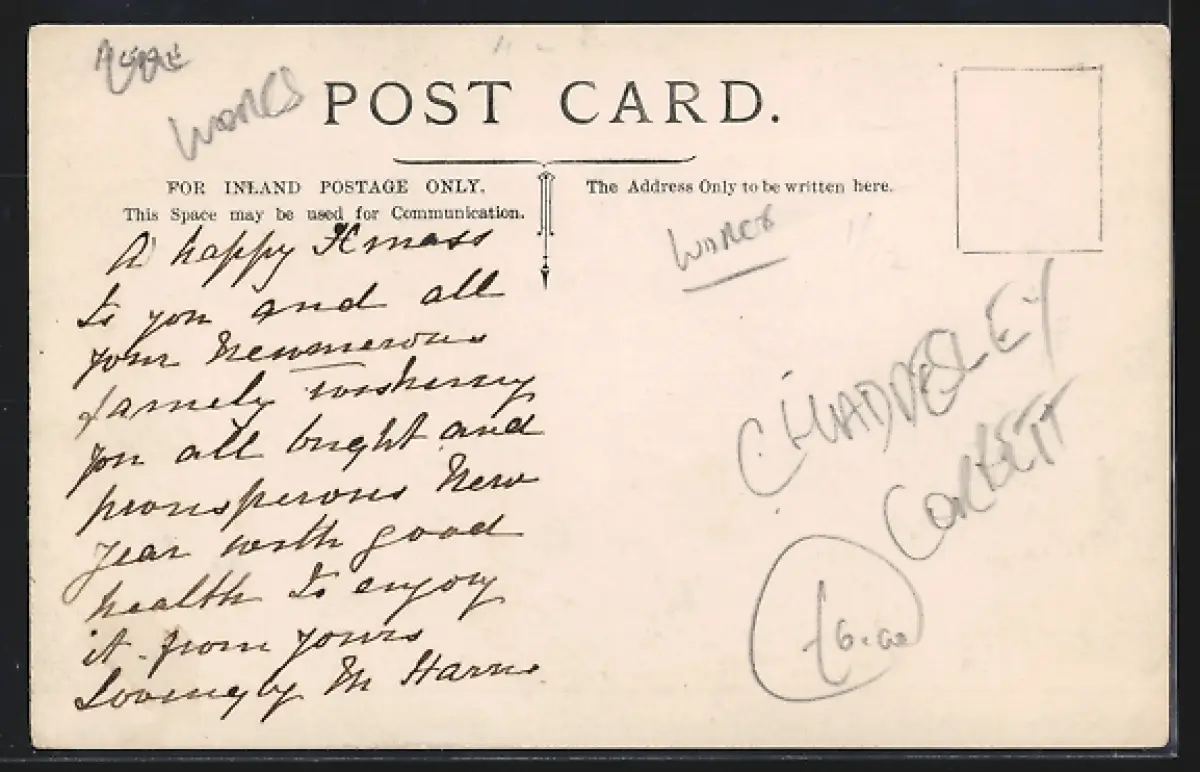 WORCS
POST CARD.
FOR INLAND POSTAGE ONLY.
This Space may be used for Communication.
The Address Only to be written here.
A happy Xmass
to you and all
your Newmerous
famely wisheing
you all bright and
prousperous New
Year with good
health to enjoy
it from yours
Lovingly M
WORCS
CHADDESLEY
CORBETT
£6.00